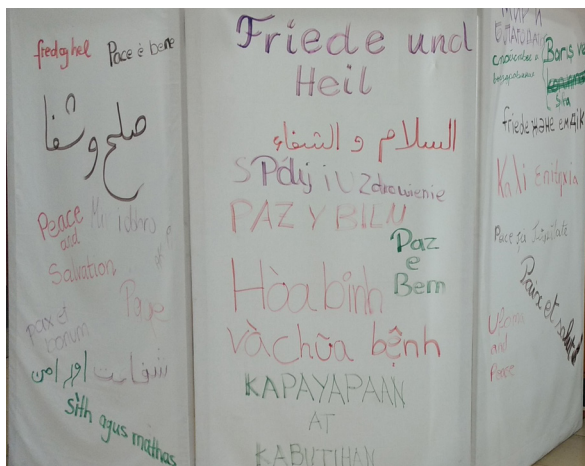 fred og hel
Pace è bene
صلح و شفا
Peace
and
Salvation
Mir i dobro
Paye
pax et
bonum
شفاعت اور امن
sìth agus mathas
Friede und
Heil
السلام و الشفاء
Spokój i Uzdrowienie
PAZ Y BIEN
Paz
e
Bem
Hòa bình
và chữa bệnh
KAPAYAPAAN
AT
KABUTIHAN
МИР И
Barış ve
şifa
friede жəне емдік
Kali Epitixia
Pace și Sănătate
Paix et salut
and
Peace